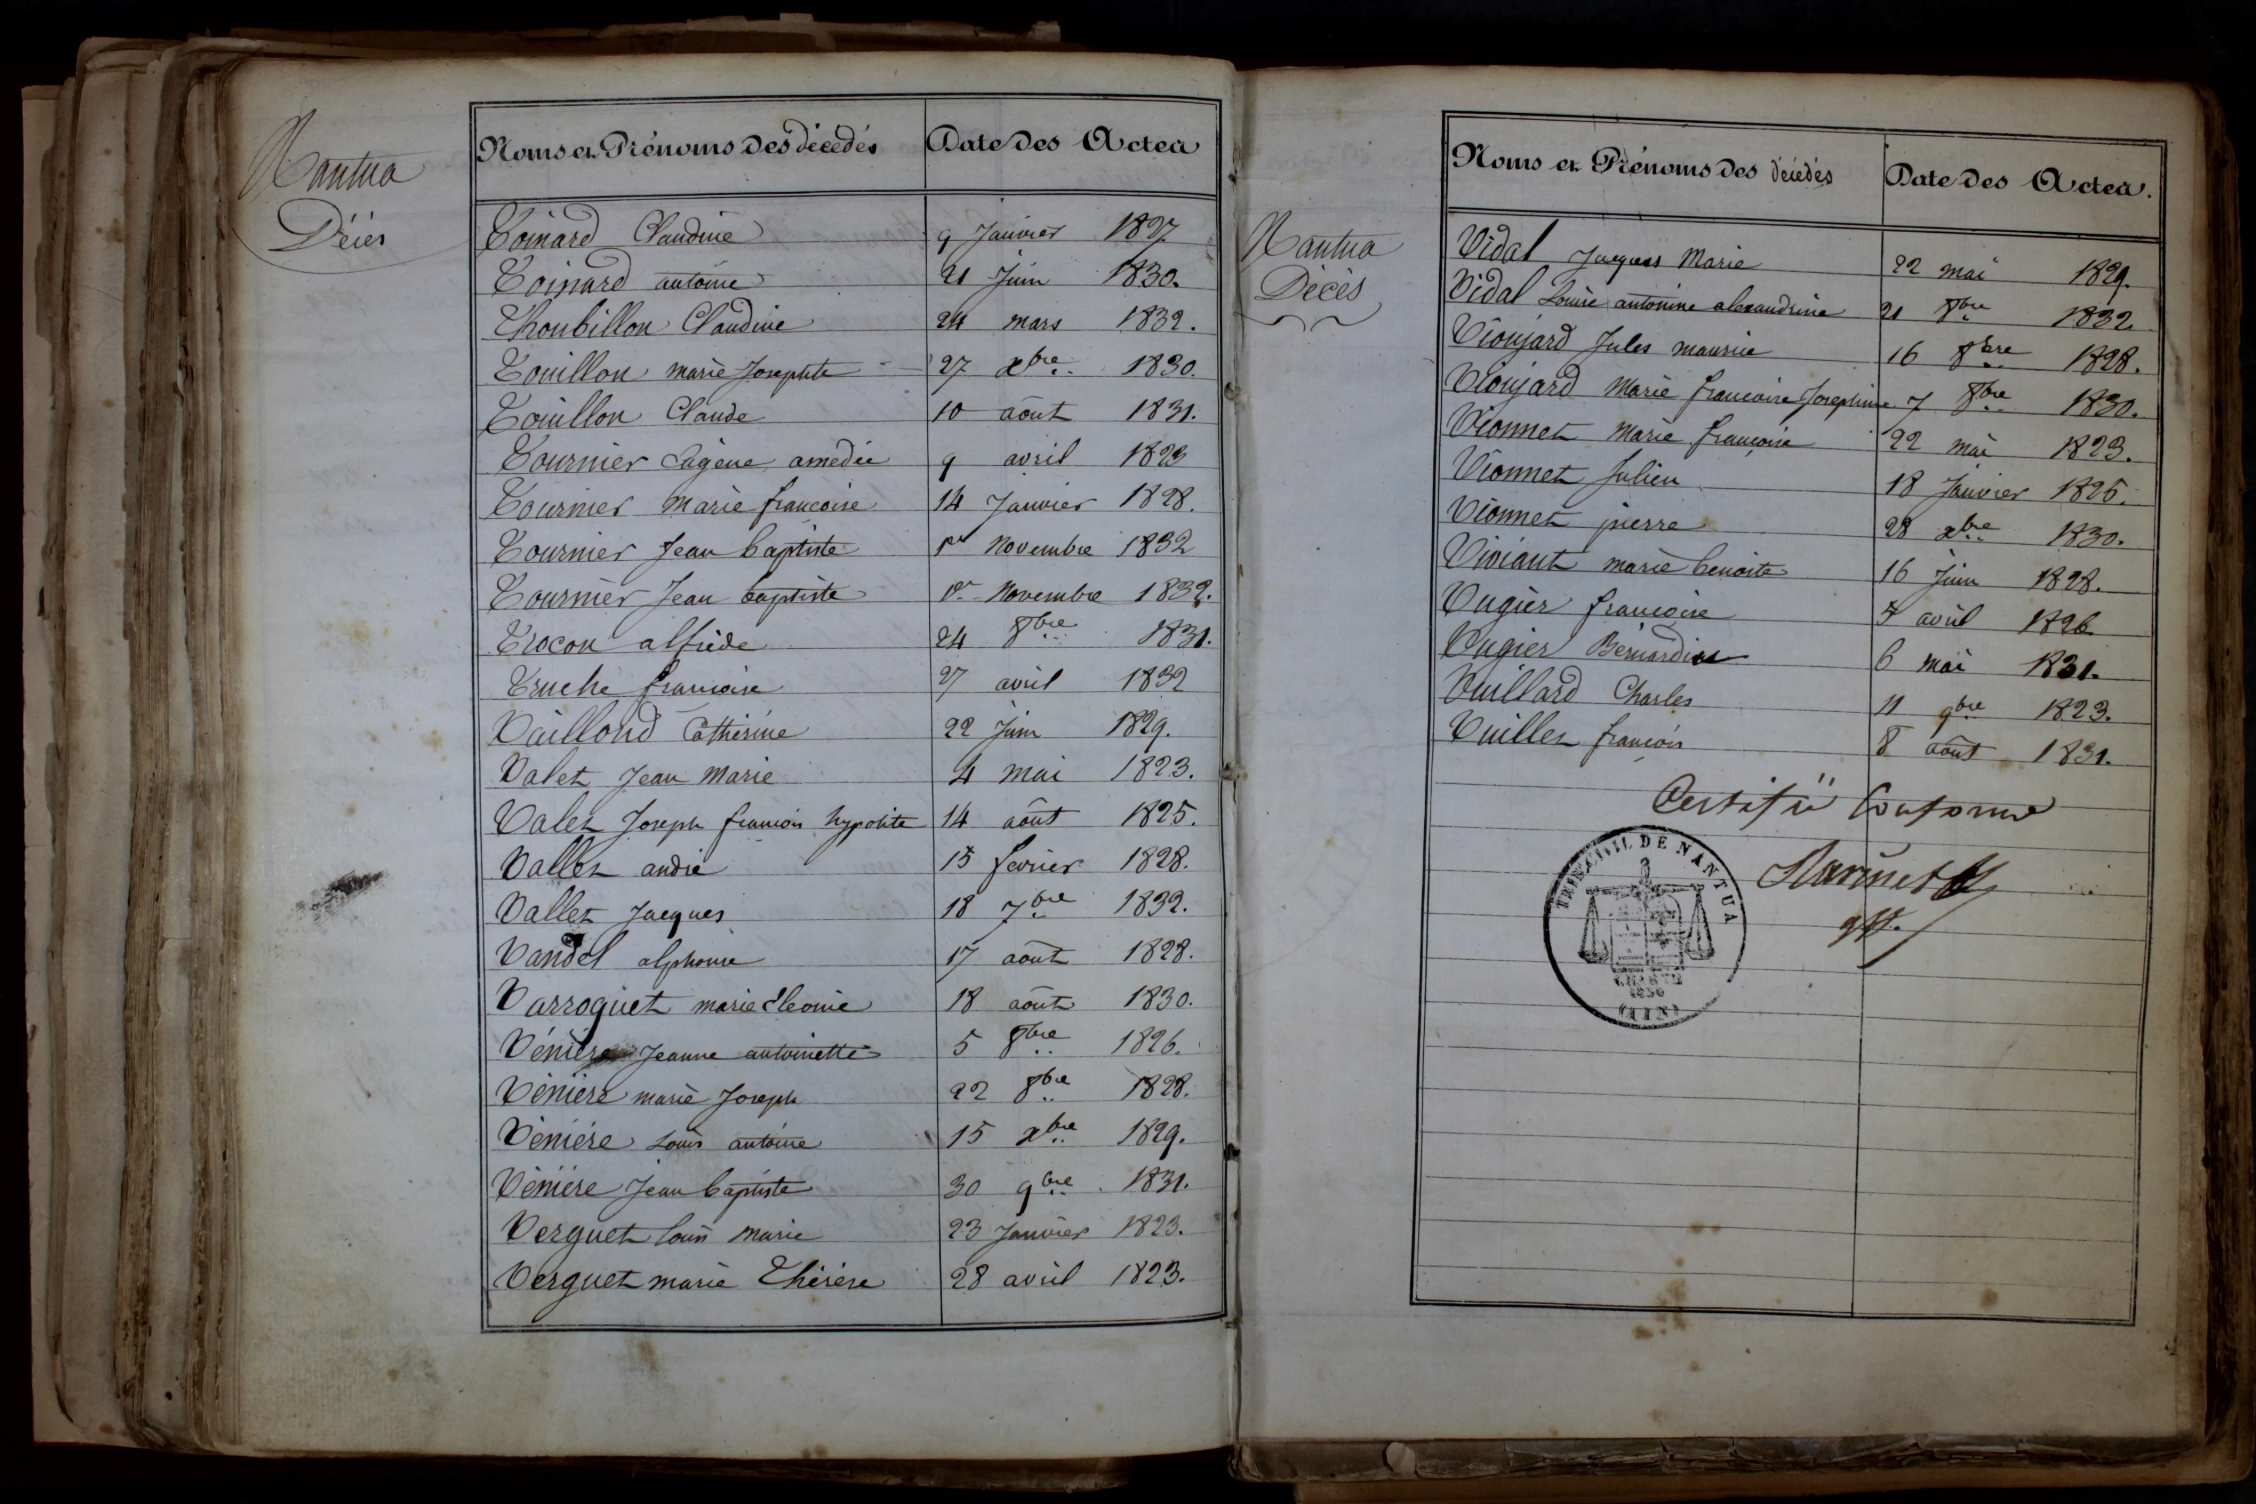 Nantua
Décès
Noms et Prénoms des décédés Date des Actes
Toinard Claudine 9 Janvier 1827
Toinard antoine 21 Juin 1830.
Thoubillon Claudine 24 mars 1832.
Touillon marie Josephte 27 xbre 1830.
Touillon Claude 10 août 1831.
Tournier Eugène amédée 9 avril 1823
Tournier Marie françoise 14 Janvier 1828.
Tournier Jean baptiste 1er Novembre 1832
Tournier Jean baptiste 1er Novembre 1832.
Trocon alfrède 24 8bre 1831.
Truche françoise 27 avril 1832
Vaillond Catherine 22 Juin 1829.
Valet Jean Marie 4 mai 1823.
Valet Joseph françois hypolite 14 août 1825.
Vallet andré 15 fevrier 1828.
Vallet Jacques 18 7bre 1832.
Vandel alphonse 17 août 1828.
Varroquet marie Eleonie 18 août 1830.
Vénière Jeanne antoinette 5 8bre 1826.
Vénière marie Joseph 22 8bre 1828.
Vénière Louis antoine 15 xbre 1829.
Vénière Jean baptiste 30 9bre 1831.
Verguet louis Marie 23 Janvier 1823.
Verguet marie Thérèse 28 avril 1823.
Nantua
Décès
Noms et Prénoms des décédés Date des Actes.
Vidal Jacques Marie 22 mai 1829.
Vidal Louise antonine alexandrine 21 8bre 1832.
Vioujard Jules maurice 16 8bre 1828.
Vioujard Marie françoise Josephine 7 8bre 1830.
Vionnet Marie françoise 22 mai 1823.
Vionnet Julien 18 Janvier 1825.
Vionnet pierre 28 xbre 1830.
Viviant marie benoite 16 Juin 1828.
Vugier françoise 4 avril 1826
Vugier Bernardine 6 mai 1831.
Vuillard Charles 11 9bre 1823.
Vuillet françois 8 août 1831.
Certifié Conforme
TRIB. CIVIL DE NANTUA
CHARTE
1830
(AIN)